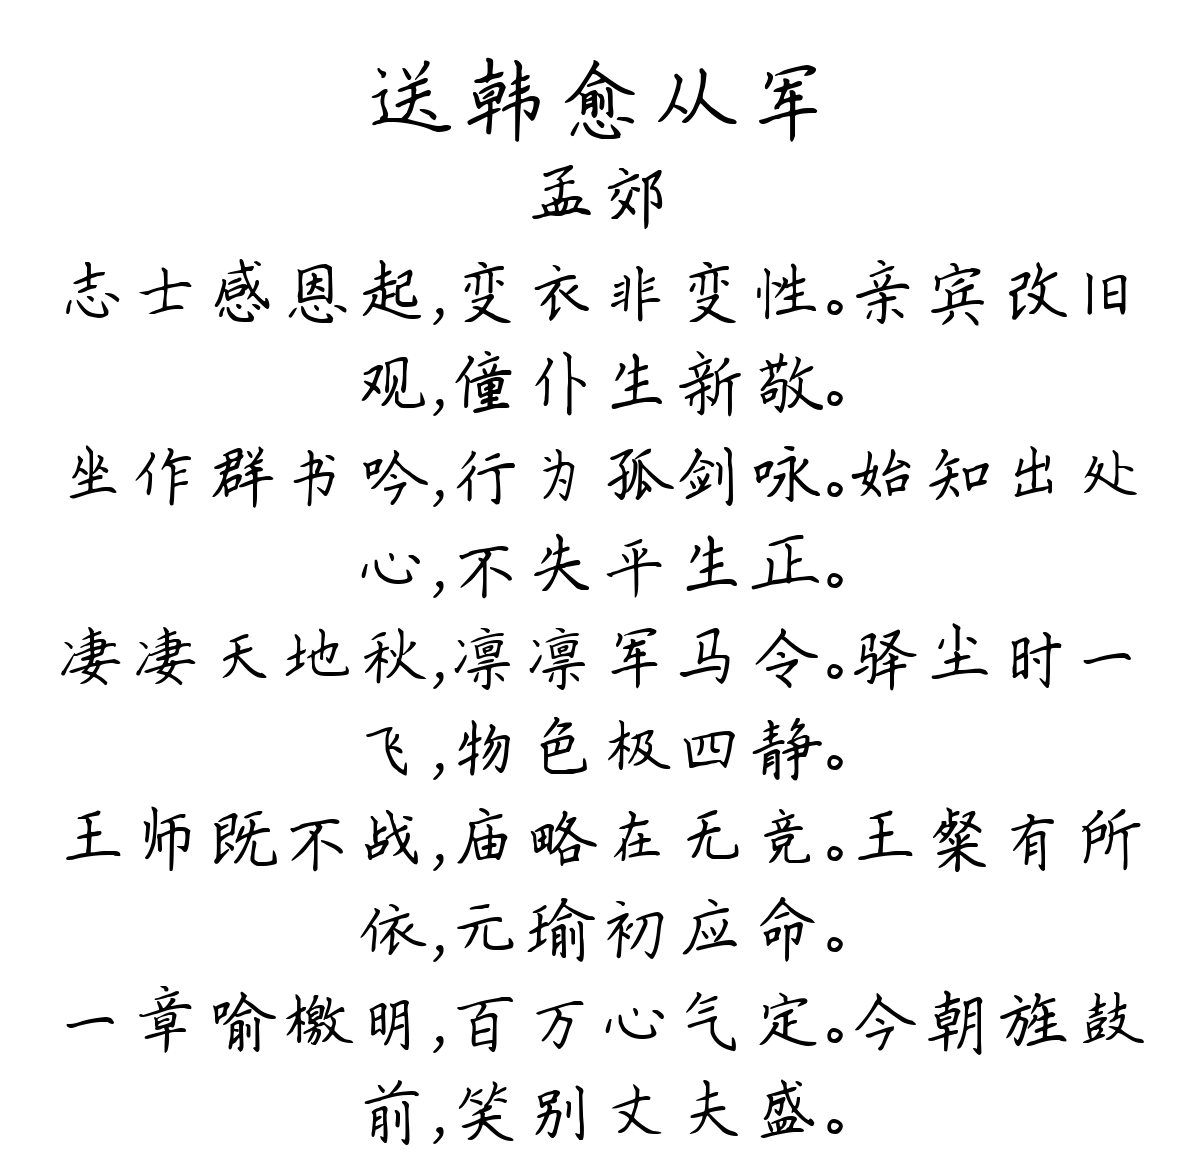 送韩愈从军
孟郊
志士感恩起,变衣非变性。亲宾改旧
观,僮仆生新敬。
坐作群书吟,行为孤剑咏。始知出处
心,不失平生正。
凄凄天地秋,凛凛军马令。驿尘时一
飞,物色极四静。
王师既不战,庙略在无竞。王粲有所
依,元瑜初应命。
一章喻檄明,百万心气定。今朝旌鼓
前,笑别丈夫盛。